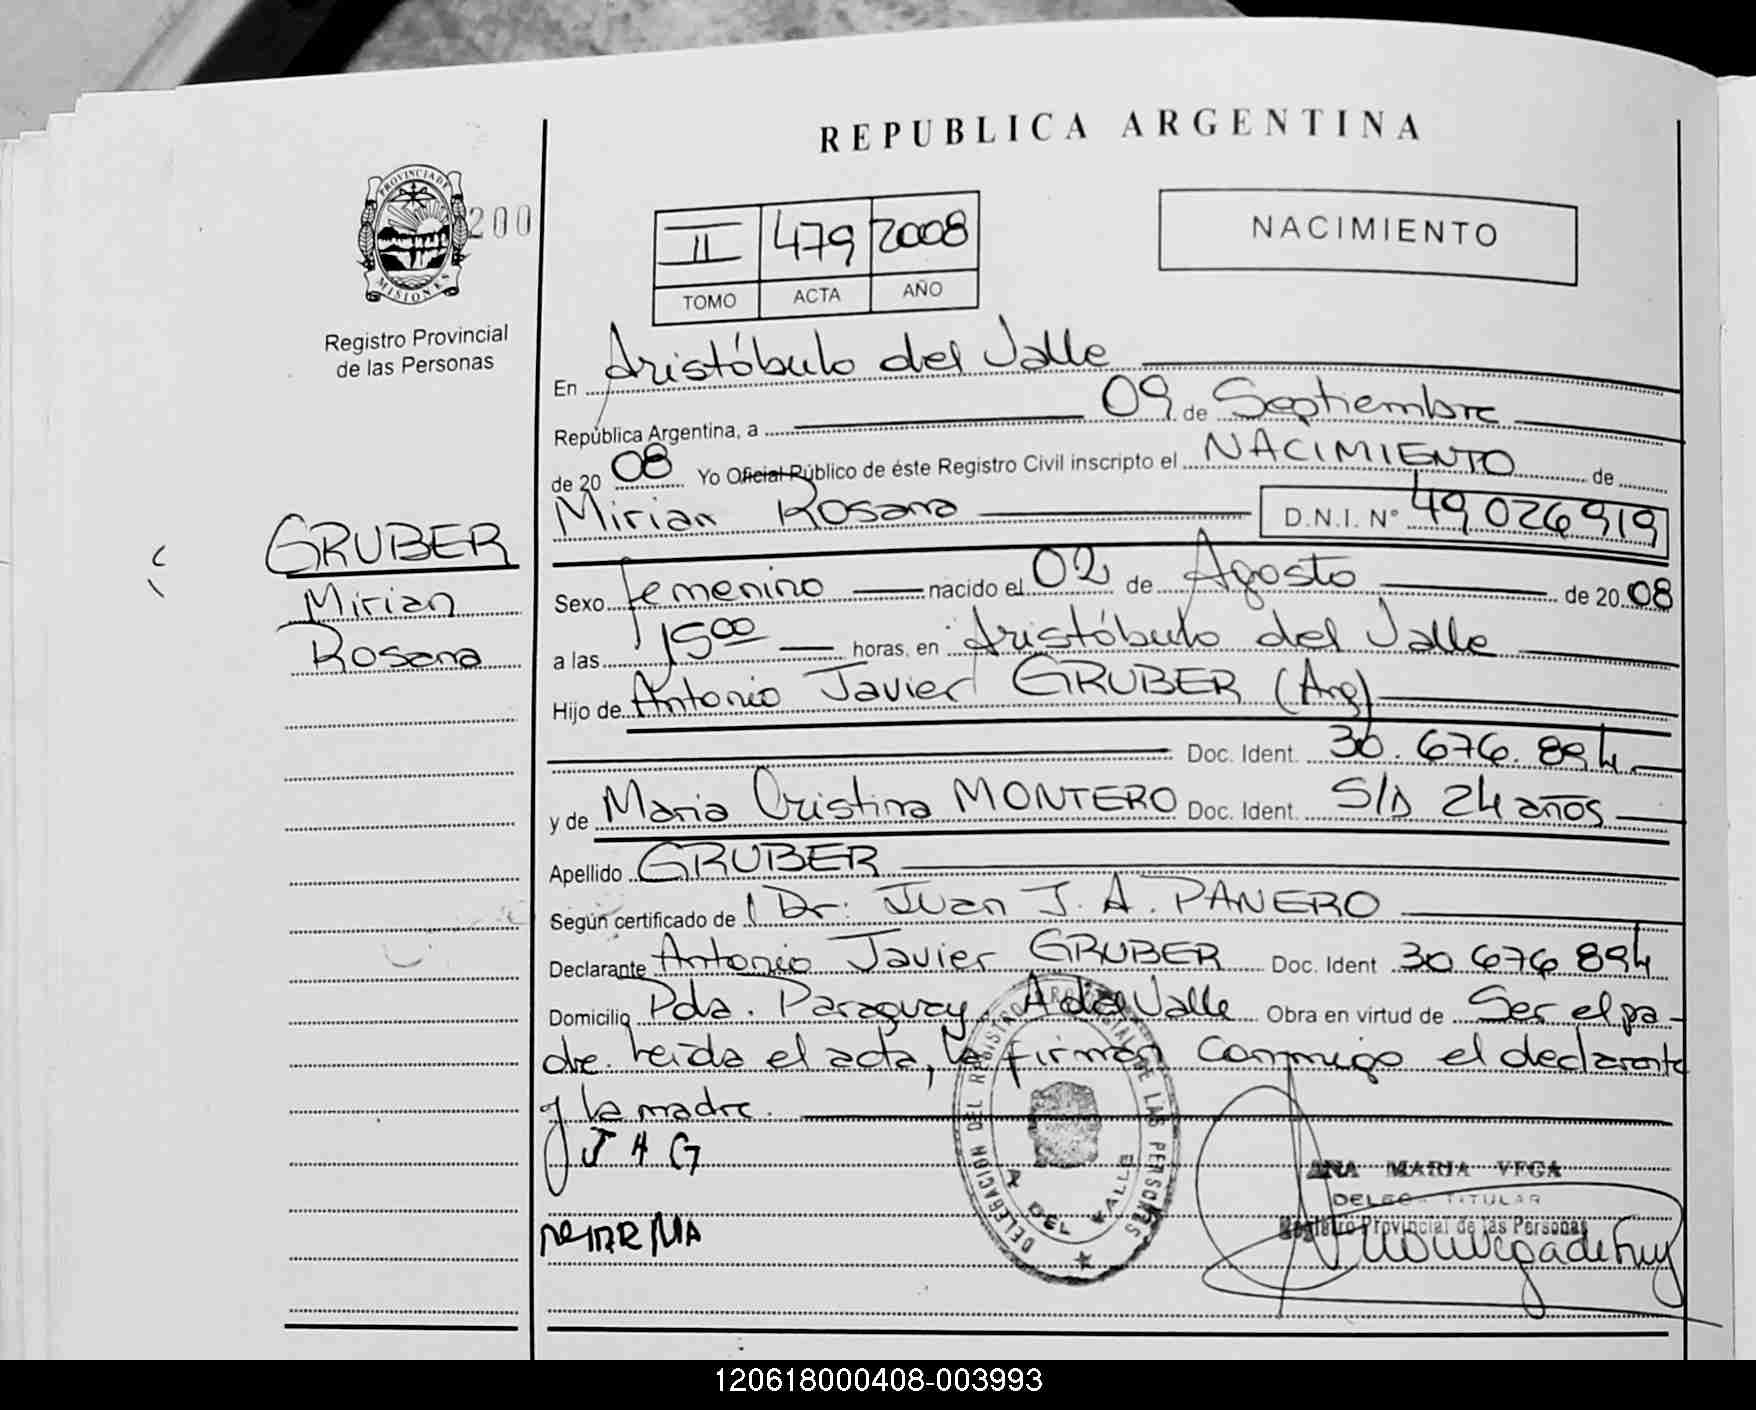 REPUBLICA ARGENTINA
PROVINCIA DE
MISIONES
200
II 479 2008
TOMO ACTA AÑO
NACIMIENTO
Registro Provincial
de las Personas
En Aristóbulo del Valle
República Argentina, a 09 de Septiembre
de 20 08 Yo Oficial Público de éste Registro Civil inscripto el NACIMIENTO de
Mirian Rosana D.N.I. Nº 49 026 919
GRUBER
Mirian
Rosana
Sexo femenino nacido el 02 de Agosto de 20 08
a las 15 00 horas, en Aristóbulo del Valle
Hijo de Antonio Javier GRUBER (Arg)
Doc. Ident. 30.676.894
y de Maria Cristina MONTERO Doc. Ident. S/D 24 años
Apellido GRUBER
Según certificado de Dr: Juan J. A. PANERO
Declarante Antonio Javier GRUBER Doc. Ident 30 676 894
Domicilio Pda. Paraguay A del Valle Obra en virtud de Ser el pa-
dre. Leida el acta, la firman conmigo el declarante
y la madre.
J A G
DELEGACION DEL REGISTRO PROVINCIAL DE LAS PERSONAS
A DEL VALLE
ANA MARIA VEGA
DELEG TITULAR
Registro Provincial de las Personas
120618000408-003993